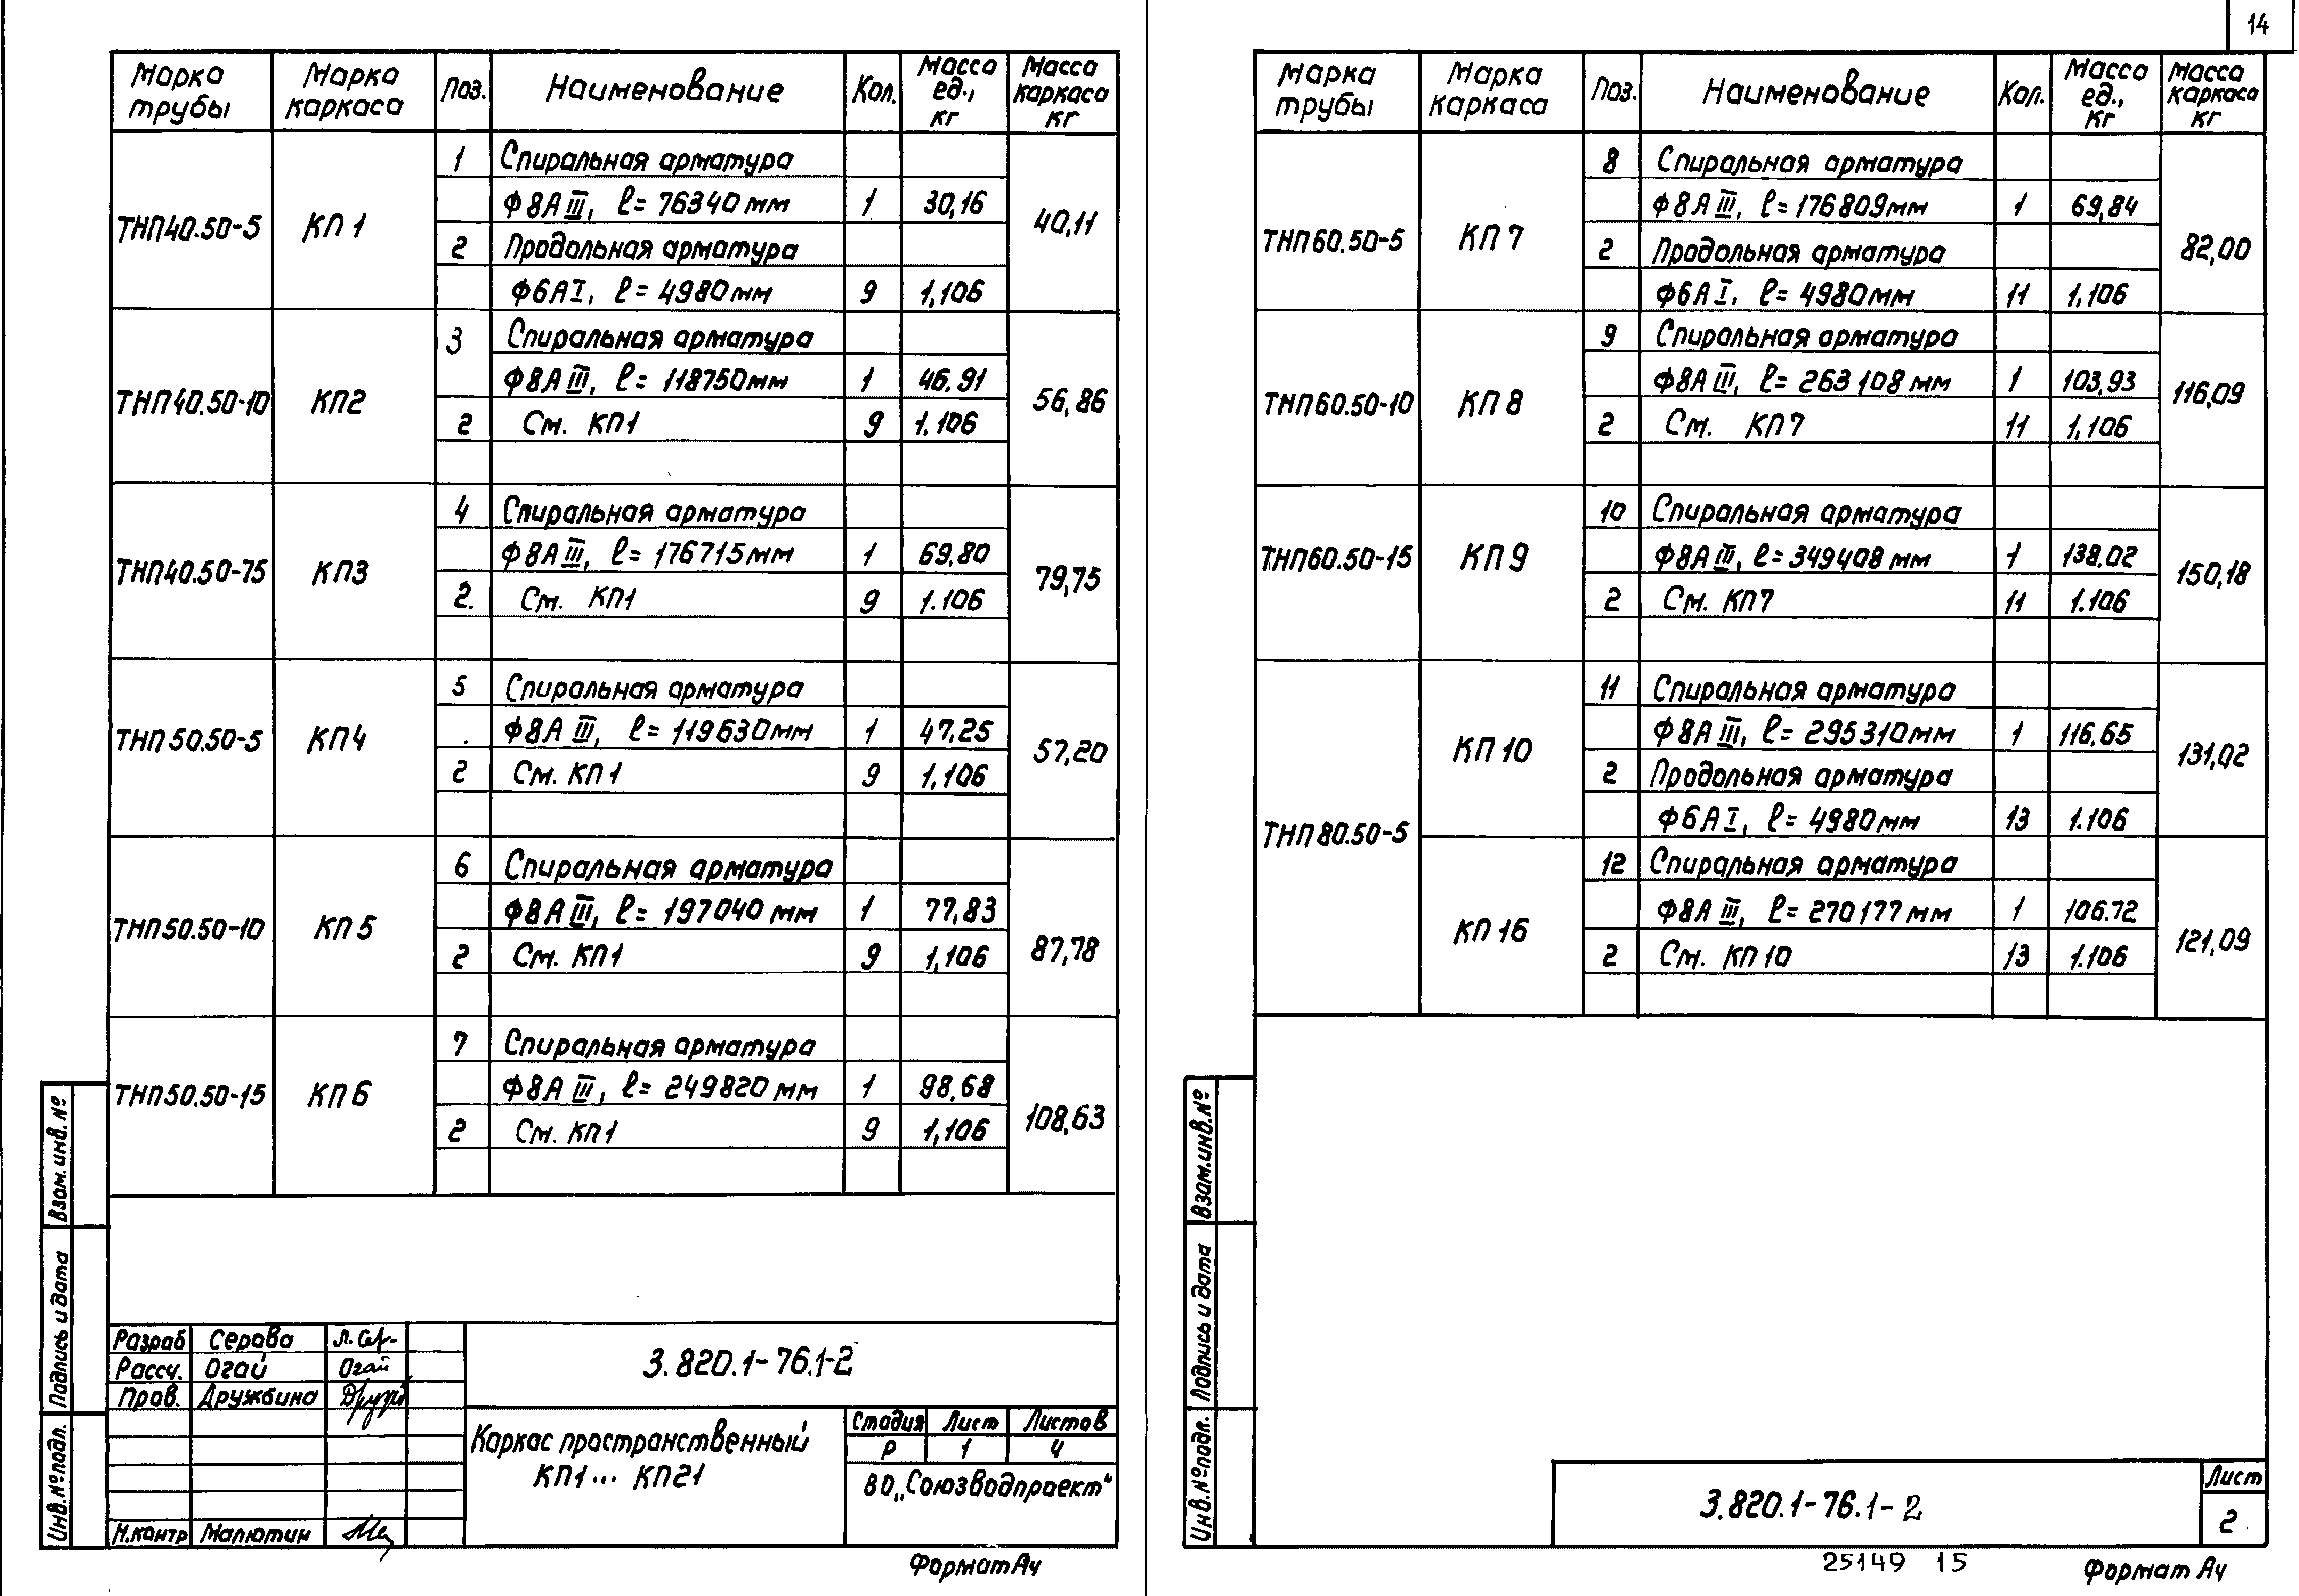 14
Марка трубы Марка каркаса Поз. Наименование Кол. Масса ед., кг Масса каркаса кг
1 Спиральная арматура
ТНП40.50-5 КП1 Ф8АIII, ℓ= 76340мм 1 30,16 40,11
2 Продольная арматура
Ф6АI, ℓ= 4980мм 9 1,106
3 Спиральная арматура
ТНП40.50-10 КП2 Ф8АIII, ℓ= 118750мм 1 46.91 56,86
2 См. КП1 9 1.106
4 Спиральная арматура
ТНП40.50-75 КП3 Ф8АIII, ℓ= 176715мм 1 69,80 79,75
2. См. КП1 9 1.106
5 Спиральная арматура
ТНП50.50-5 КП4 Ф8АIII, ℓ= 119630мм 1 47,25 57,20
2 См. КП1 9 1,106
6 Спиральная арматура
ТНП50.50-10 КП5 Ф8АIII, ℓ= 197040мм 1 77,83 87,78
2 См. КП1 9 1,106
7 Спиральная арматура
ТНП50.50-15 КП6 Ф8АIII, ℓ= 249820мм 1 98,68 108,63
2 См. КП1 9 1,106
Взам.инв.№
Подпись и дата
Инв.№подл.
Разраб Серова Л. Сер-
Рассч. Огай Огай
Пров. Дружбина
Н.контр Малютин
3.820.1-76.1-2
Каркас пространственный
КП1... КП21
Стадия Лист Листов
Р 1 4
ВО„Союзводпроект“
Формат А4
Марка трубы Марка каркаса Поз. Наименование Кол. Масса ед., кг Масса каркаса кг
8 Спиральная арматура
ТНП60.50-5 КП7 Ф8АIII, ℓ=176809мм 1 69,84 82,00
2 Продольная арматура
Ф6АI, ℓ= 4980мм 11 1,106
9 Спиральная арматура
ТНП60.50-10 КП8 Ф8АIII, ℓ= 263108мм 1 103,93 116,09
2 См. КП7 11 1,106
10 Спиральная арматура
ТНП60.50-15 КП9 Ф8АIII, ℓ=349408мм 1 138.02 150,18
2 См. КП7 11 1.106
11 Спиральная арматура
ТНП80.50-5 КП10 Ф8АIII, ℓ= 295310мм 1 116,65 131,02
2 Продольная арматура
Ф6АI, ℓ= 4980мм 13 1.106
12 Спиральная арматура
КП16 Ф8АIII, ℓ= 270177мм 1 106.72 121,09
2 См. КП10 13 1.106
Взам.инв.№
Подпись и дата
Инв.№подл.
3.820.1-76.1-2
Лист
2
25149 15
Формат А4